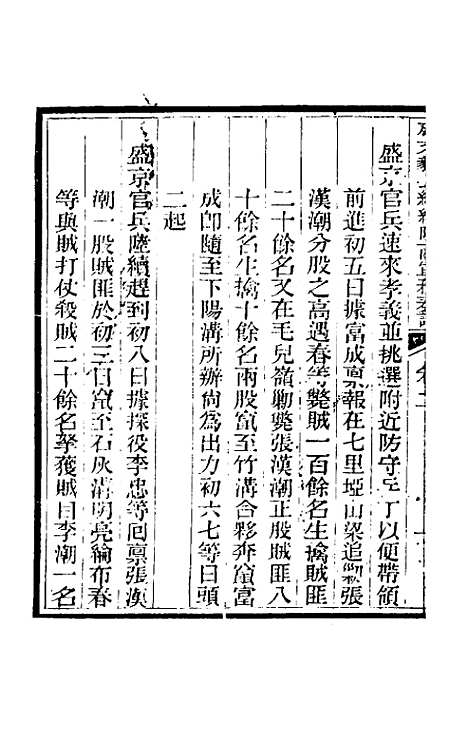 盛京官兵速來孝義並挑選附近防守兵丁以便帶領
前進初五日據富成稟報在七里埡山梁追勦張
漢潮分股之高遇春等斃賊一百餘名生擒賊匪
二十餘名又在毛兒嶺勦斃張漢潮正股賊匪八
十餘名生擒十餘名兩股竄至竹溝合夥奔竄富
成即隨至下陽溝所辦尚為出力初六七等日頭
二起
盛京官兵陸續趕到初八日據探役李忠等回稟張漢
潮一股賊匪於初三日竄至石灰溝明亮綸布春
等與賊打仗殺賊二十餘名拏獲賊目李潮一名